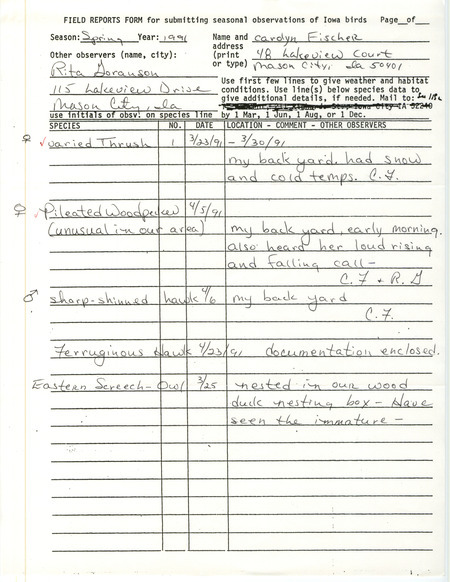 FIELD REPORTS FORM for submitting seasonal observations of Iowa birds Page__of__
Season: Spring Year: 1991 Name and Carolyn Fischer
address
Other observers (name, city): (print 48 Lakeview Court
or type) Mason City, Ia 50401
Rita Goranson
115 Lakeview Drive
Mason City, Ia
use initials of obsv. on species line
Use first few lines to give weather and habitat
conditions. Use line(s) below species data to
give additional details, if needed. Mail to:
by 1 Mar, 1 Jun, 1 Aug, or 1 Dec.
SPECIES NO. DATE LOCATION - COMMENT - OTHER OBSERVERS
♀ ✓ Varied Thrush 1 3/23/91 - 3/30/91
my back yard. had snow
and cold temps. C.F.
♀ ✓ Pileated Woodpecker 4/5/91
(unusual in our area) my back yard, early morning.
also heard her loud rising
and falling call -
C.F + R.G
♂ Sharp-shinned hawk 4/6 my back yard
C.F.
Ferruginous Hawk 4/23/91 documentation enclosed.
Eastern Screech-Owl 3/25 nested in our wood
duck nesting box - Have
seen the immature -